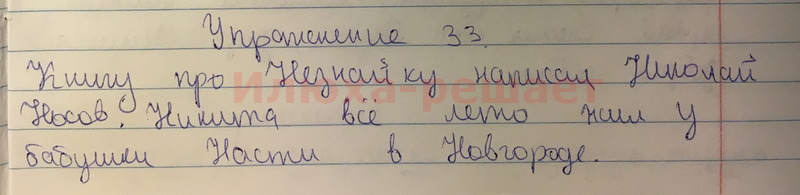 Упражнение 33.
Книгу про Незнайку написал Николай
Илюха-решает
Носов. Никита всё лето жил у
бабушки Насти в Новгороде.